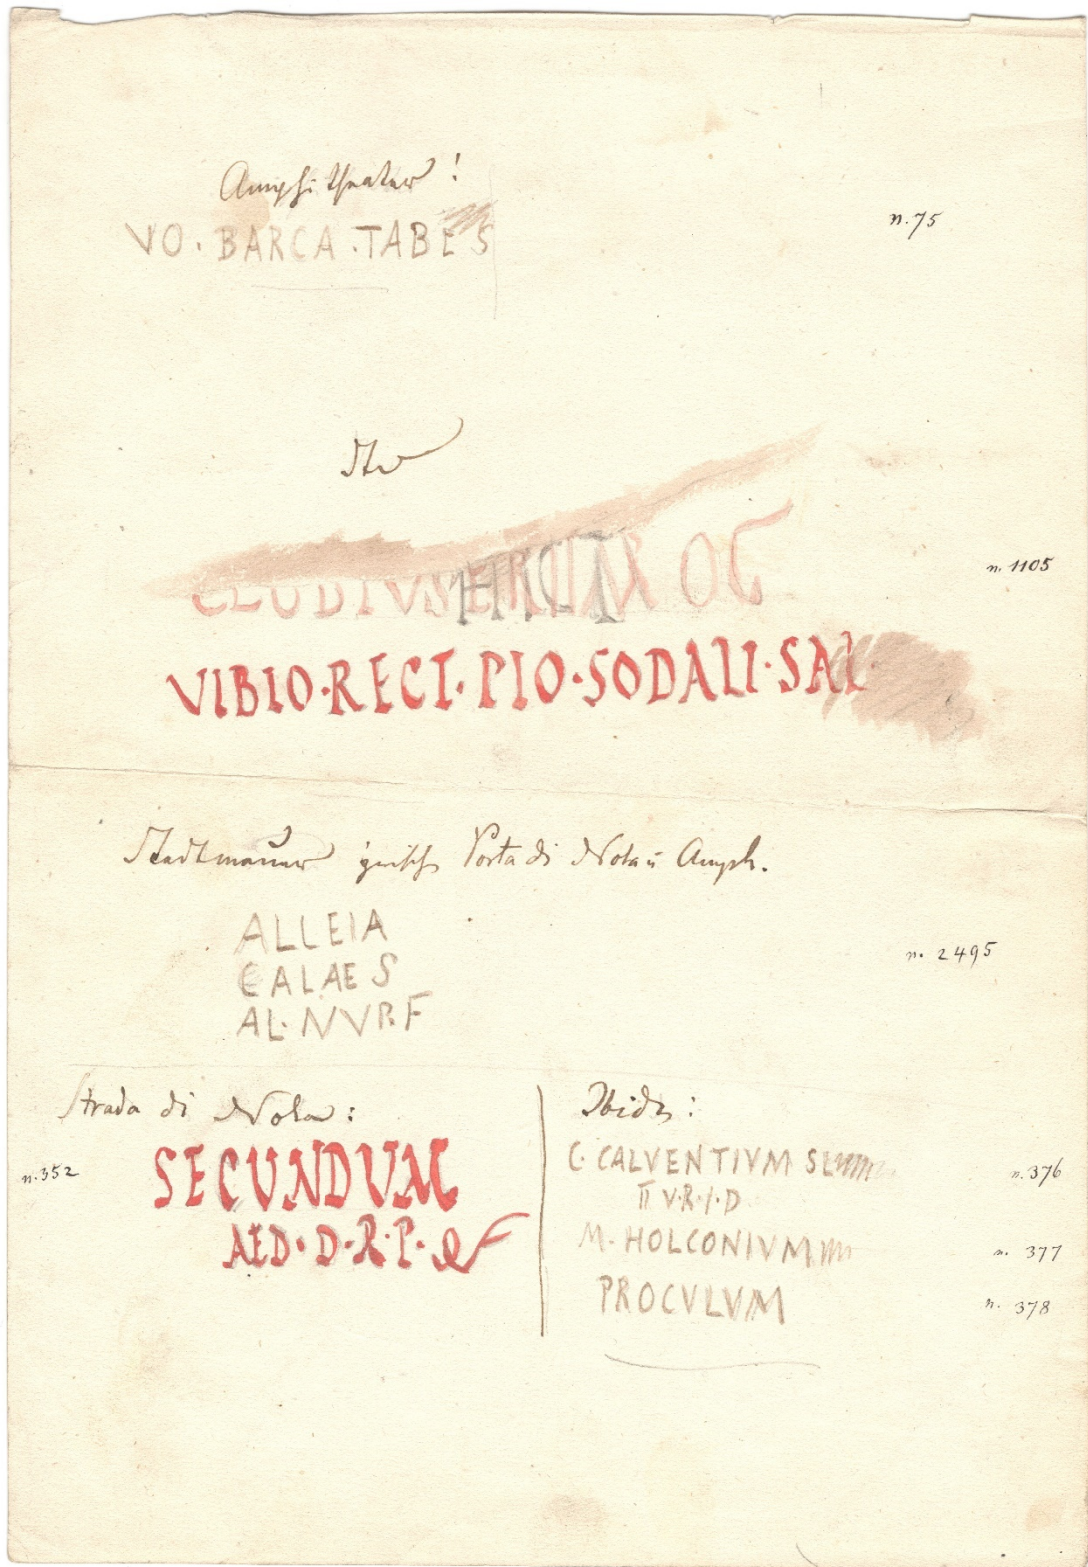 Amphitheater!
VO. BARCA. TABES
n. 75
n. 1105
VIBIO·RECI·PIO·SODALI·SAL
Stadtmauer zwisch Porta di Nola u Amph.
ALLEIA
CALAES
AL. NVR.F
n. 2495
Strada di Nola:
SECUNDUM
AED·D·R·P·
n. 352
Ibid:
C. CALVENTIVM S
n. 376
II V·R·I·D
M. HOLCONIVM
n. 377
PROCVLVM
n. 378